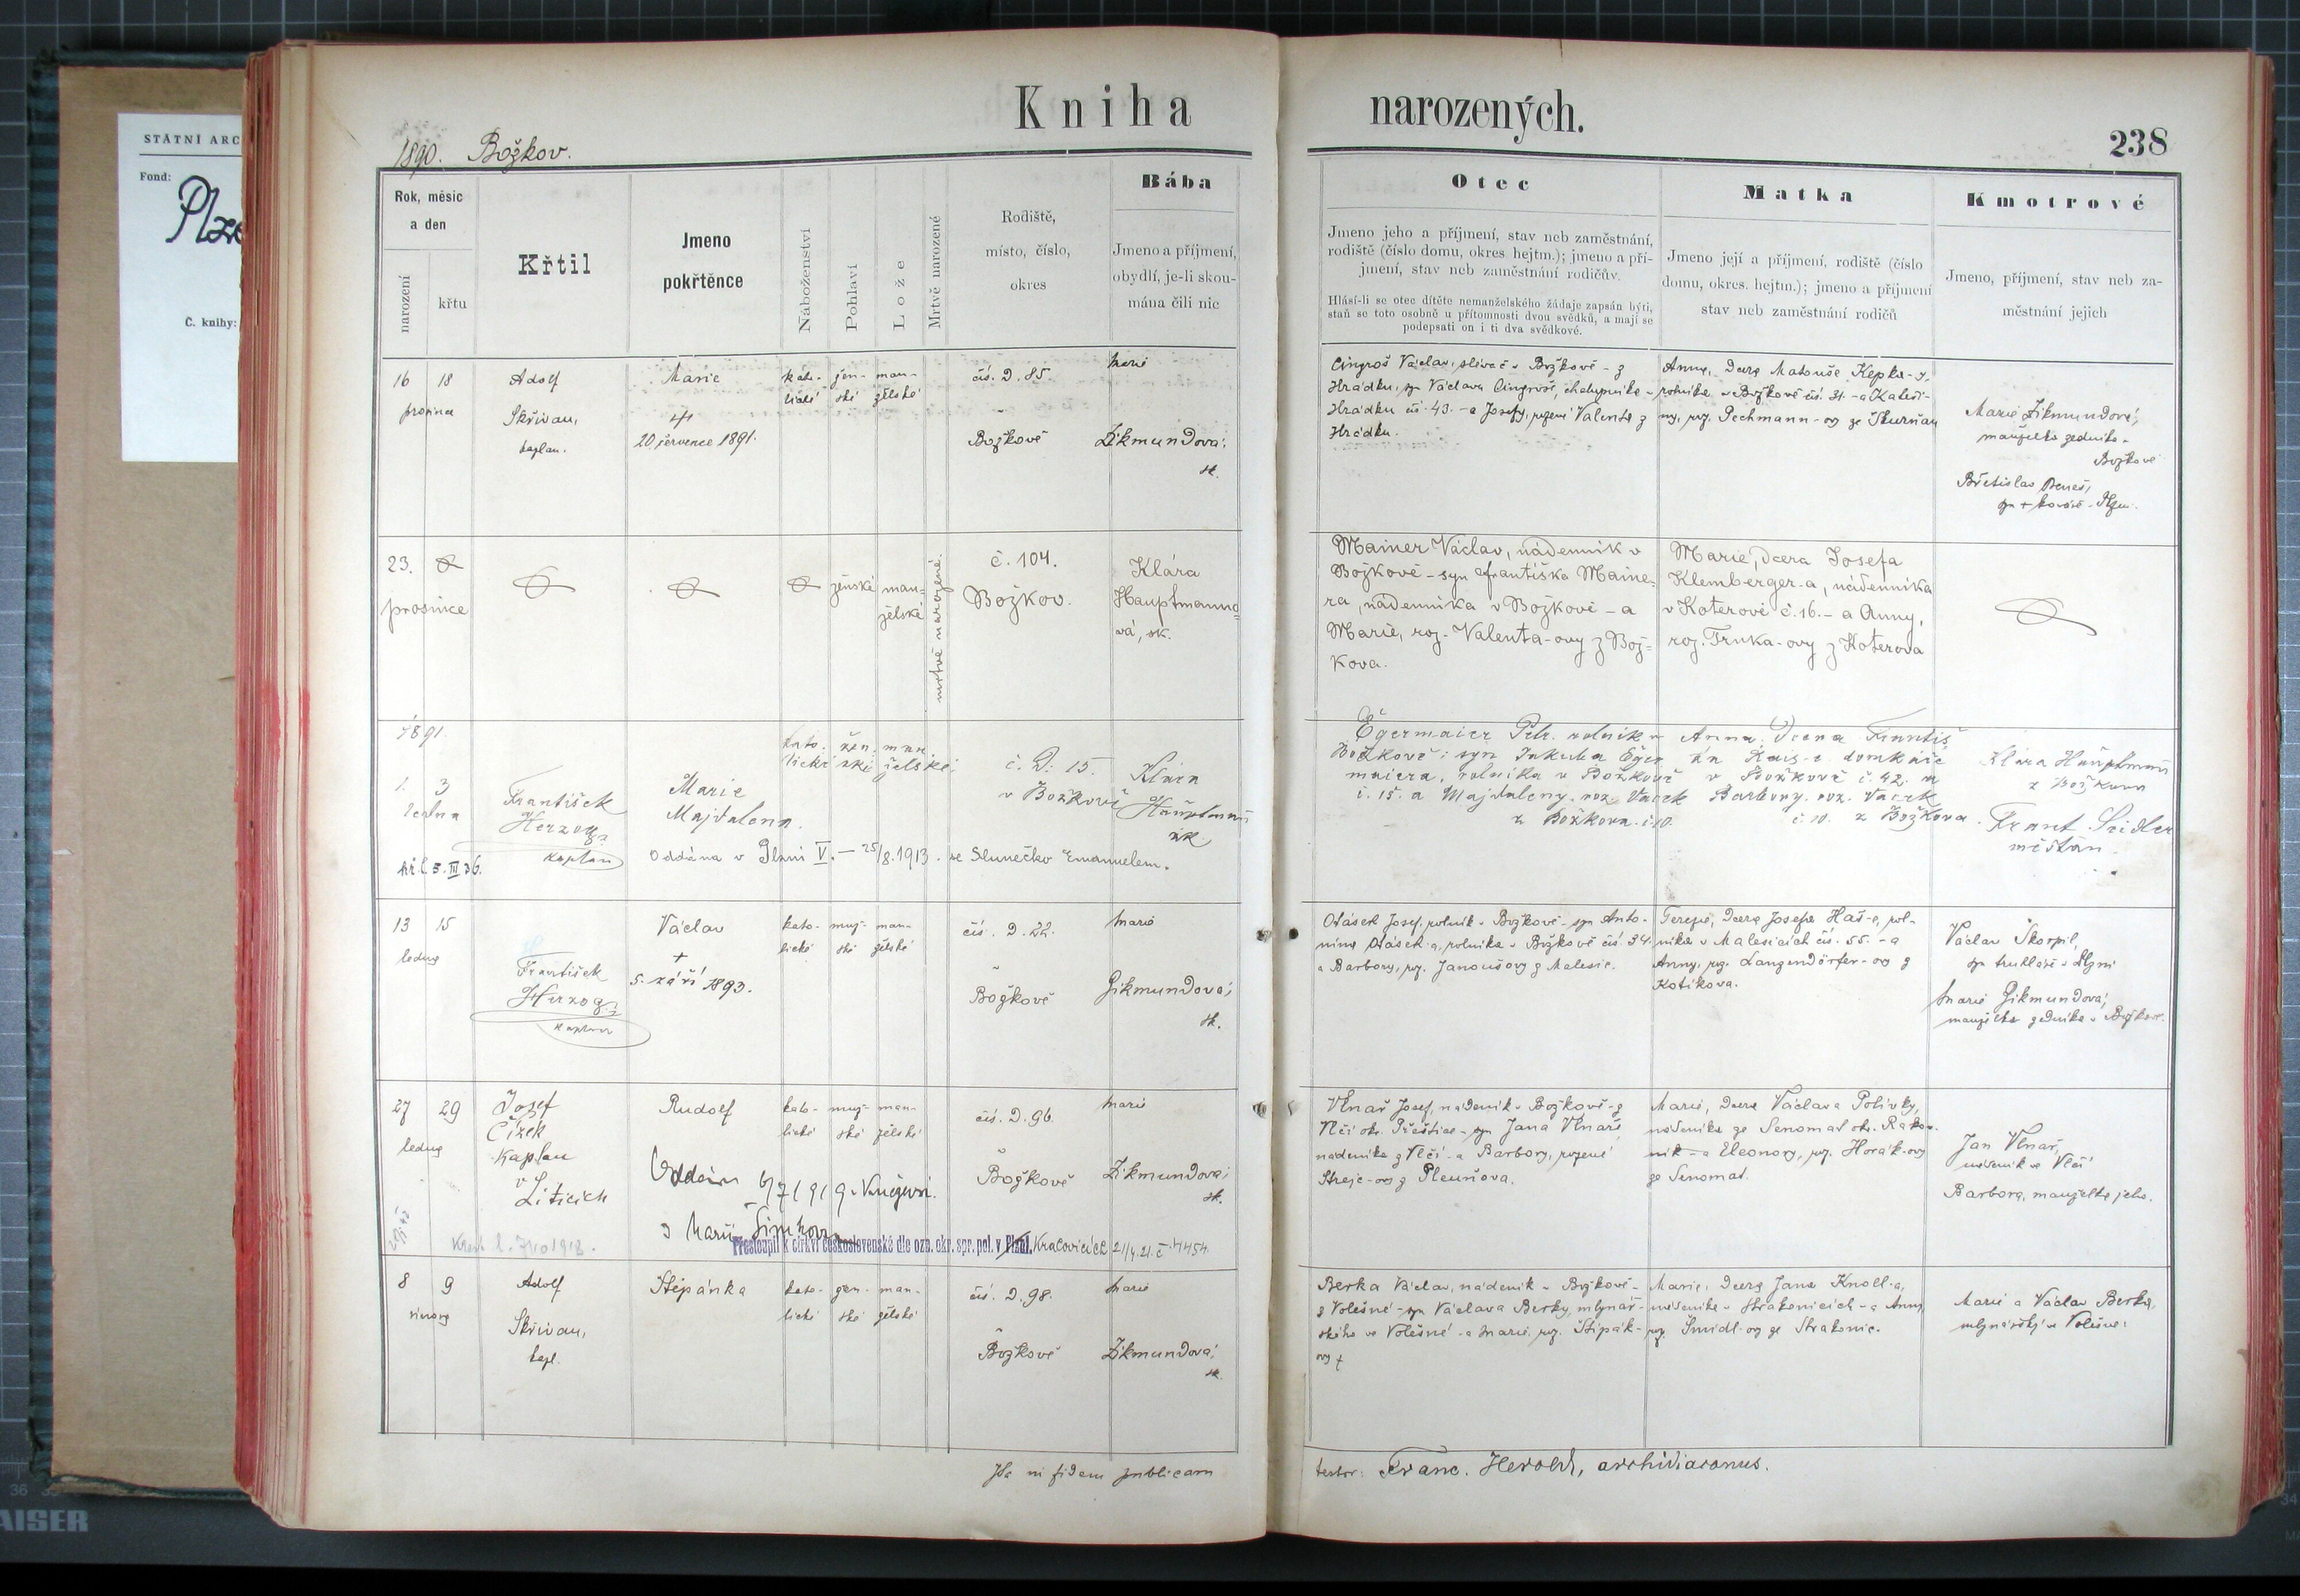 STÁTNÍ ARC
Fond:
Plze
Č. knihy:
Kniha narozených.
1890. Božkov.
238
Rok, měsíc
a den
narození
křtu
Křtil
Jmeno
pokřtěnce
Náboženství
Pohlaví
Lože
Mrtvě narozené
Rodiště,
místo, číslo,
okres
Bába
Jmeno a příjmení,
obydlí, je-li skou-
mána čili nic
Otec
Jmeno jeho a příjmení, stav neb zaměstnání,
rodiště (číslo domu, okres. hejtm.); jmeno a pří-
jmení, stav neb zaměstnání rodičův.
Hlásí-li se otec dítěte nemanželského žádaje zapsán býti,
staň se toto osobně u přítomnosti dvou svědků, a mají se
podepsati on i ti dva svědkové.
Matka
Jmeno její a příjmení, rodiště (číslo
domu, okres. hejtm.); jmeno a příjmení
stav neb zaměstnání rodičů
Kmotrové
Jmeno, příjmení, stav neb za-
městnání jejich
16 18
prosince
Adolf
Skřivan,
kaplan.
Marie
20 července 1891.
kato- žen- man-
lické ské želské
čís. D. 85.
Božkově
Marie
Zikmundová;
sk.
Cingroš Václav, slévač v Božkově - z
Hrádku, syn Václava Cingroše, chalupníka v
Hrádku čís. 43. - a Josefy, rozené Valenta z
Hrádku.
Anna, dcera Matouše Kepka-y,
rolníka v Božkově čís. 31. - a Kateři-
ny, roz. Pechmann-ovy ze Skurňan
Marie Zikmundová,
manželka zedníka v
Božkově
Břetislav Beneš,
syn + kováře v Plzni.
23.
prosince
ženské
man-
želské
mrtvě narozené.
č. 104.
Božkov.
Klára
Hauptmanno-
vá, sk.
Mainer Václav, nádenník v
Božkově - syn Františka Maine-
ra, nádenníka v Božkově - a
Marie, roz. Valenta-ovy z Bož-
kova.
Marie, dcera Josefa
Klemberger-a, nádenníka
v Koterově č. 16. - a Anny,
roz. Trnka-ovy z Koterova
1891
1. 3
ledna
František
Herzog
kaplan
Marie
Majdalena.
kato- žen- man-
lické ské želské
č. D. 15.
v Božkově
Klára
Hauptmann
sk
Oddána v Plzni V. - 25/8. 1913. se Slunečko Emanuelem.
kř. l. 5. III 36.
Egermaier Petr. rolník v
Božkově; syn Jakuba Eger
maiera, rolníka v Božkově
č. 15. a Majdaleny, roz. Vacek
z Božkova č. 10.
Anna. Dcera Františ
ka Kais-a domkáře
v Božkově č. 42. a
Barbory, roz. Vacek
č. 10. z Božkova.
Klára Hauptmann
z Božkova
Frant. Seidler
měšťan.
13 15
ledna
František
Herzog
kaplan
Václav
+
5. září 1893.
kato- muž- man-
lické ské želské
čís. D. 22.
Božkově
Marie
Zikmundová;
sk.
Otásek Josef, rolník v Božkově - syn Anto-
nína Otásek-a, rolníka v Božkově čís. 34.
a Barbory, roz. Janoušovy z Malesic.
Terezie, dcera Josefa Haš-e, rol-
níka v Malesicích čís. 55. - a
Anny, roz. Langendörfer-ovy z
Kotíkova.
Václav Škorpil,
syn truhláře v Plzni
Marie Zikmundová,
manželka zedníka v Božkově.
27 29
ledna
Josef
Čížek
kaplan
v
Liticích
Rudolf
kato- muž- man-
lické ské želské
čís. D. 96.
Božkově
Marie
Zikmundová;
sk.
Oddán 6/7 1919
s Marií Šimkovou
Přestoupil k církvi československé dle ozn. okr. spr. pol. v Plzni. Kralovicích 21/4. 21. č. 4454.
Vlnař Josef, nádeník v Božkově - z
Vlčí okr. Přeštice - syn Jana Vlnaře,
nádeníka z Vlčí - a Barbory, rozené
Strejc-ovy z Pleuňova.
Marie, dcera Václava Polívky,
nádeníka ze Senomat okr. Rakov-
ník - a Eleonory, roz. Horák-ovy
ze Senomat.
Jan Vlnař,
nádeník ve Vlčí
Barbora, manželka jeho.
8 9
února
Adolf
Skřivan,
kapl.
Štěpánka
kato- žen- man-
lické ské želské
čís. D. 98.
Božkově
Marie
Zikmundová;
sk.
Berka Václav, nádeník v Božkově -
z Volešné - syn Václava Berky, mlynář-
ského ve Volešné - a Marie, roz. Štipák-
ovy +
Marie, dcera Jana Knoll-a,
nádeníka v Strakonicích - a Anny
roz. Šmidl-ovy ze Strakonic.
Marie a Václav Berka,
mlynářský ve Volešné.
fidem publicam
testor: Franc. Herold, archidiaconus.